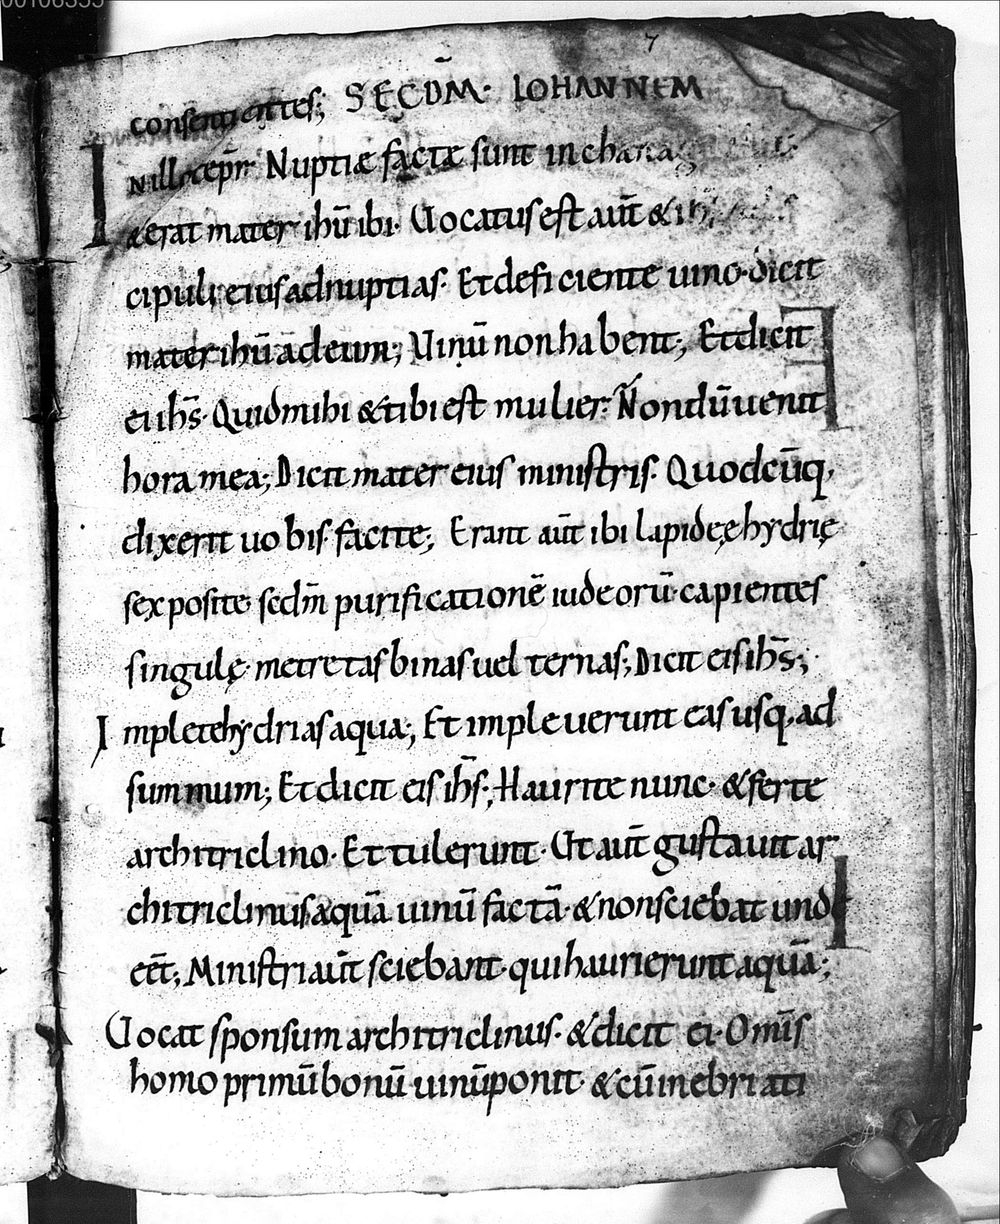 7
consentientes; SECDM̄· IOHANNEM
In illo tēpr̄ Nuptiæ factæ sunt in chana
& erat mater ihū ibi· Uocatus est aut̄ & ih
cipuli eius ad nuptias· Et deficiente uino· dicit
mater ihū ad eum; Uinū non habent; Et dicit
ei ih̄s· Quid mihi & tibi est mulier? Nondū uenit
hora mea; Dicit mater eius ministris· Quodcūq,
dixerit uobis facite; Erant aut̄ ibi lapideę hydrię
sex posite scdm̄ purificationē iudeorū· capientes
singulę metretas binas uel ternas; Dicit eis ih̄s;
Implete hydrias aqua; Et impleuerunt eas usq, ad
summum; Et dicit eis ih̄s; Haurite nunc· & ferte
architriclino· Et tulerunt· Ut aut̄ gustauit ar
chitriclinus aquā uinū factā· & non sciebat unde
eēt; Ministri aut̄ sciebant· qui haurierunt aquā;
Uocat sponsum architriclinus· & dicit ei· Om̄is
homo primū bonū uinū ponit· & cū inebriati